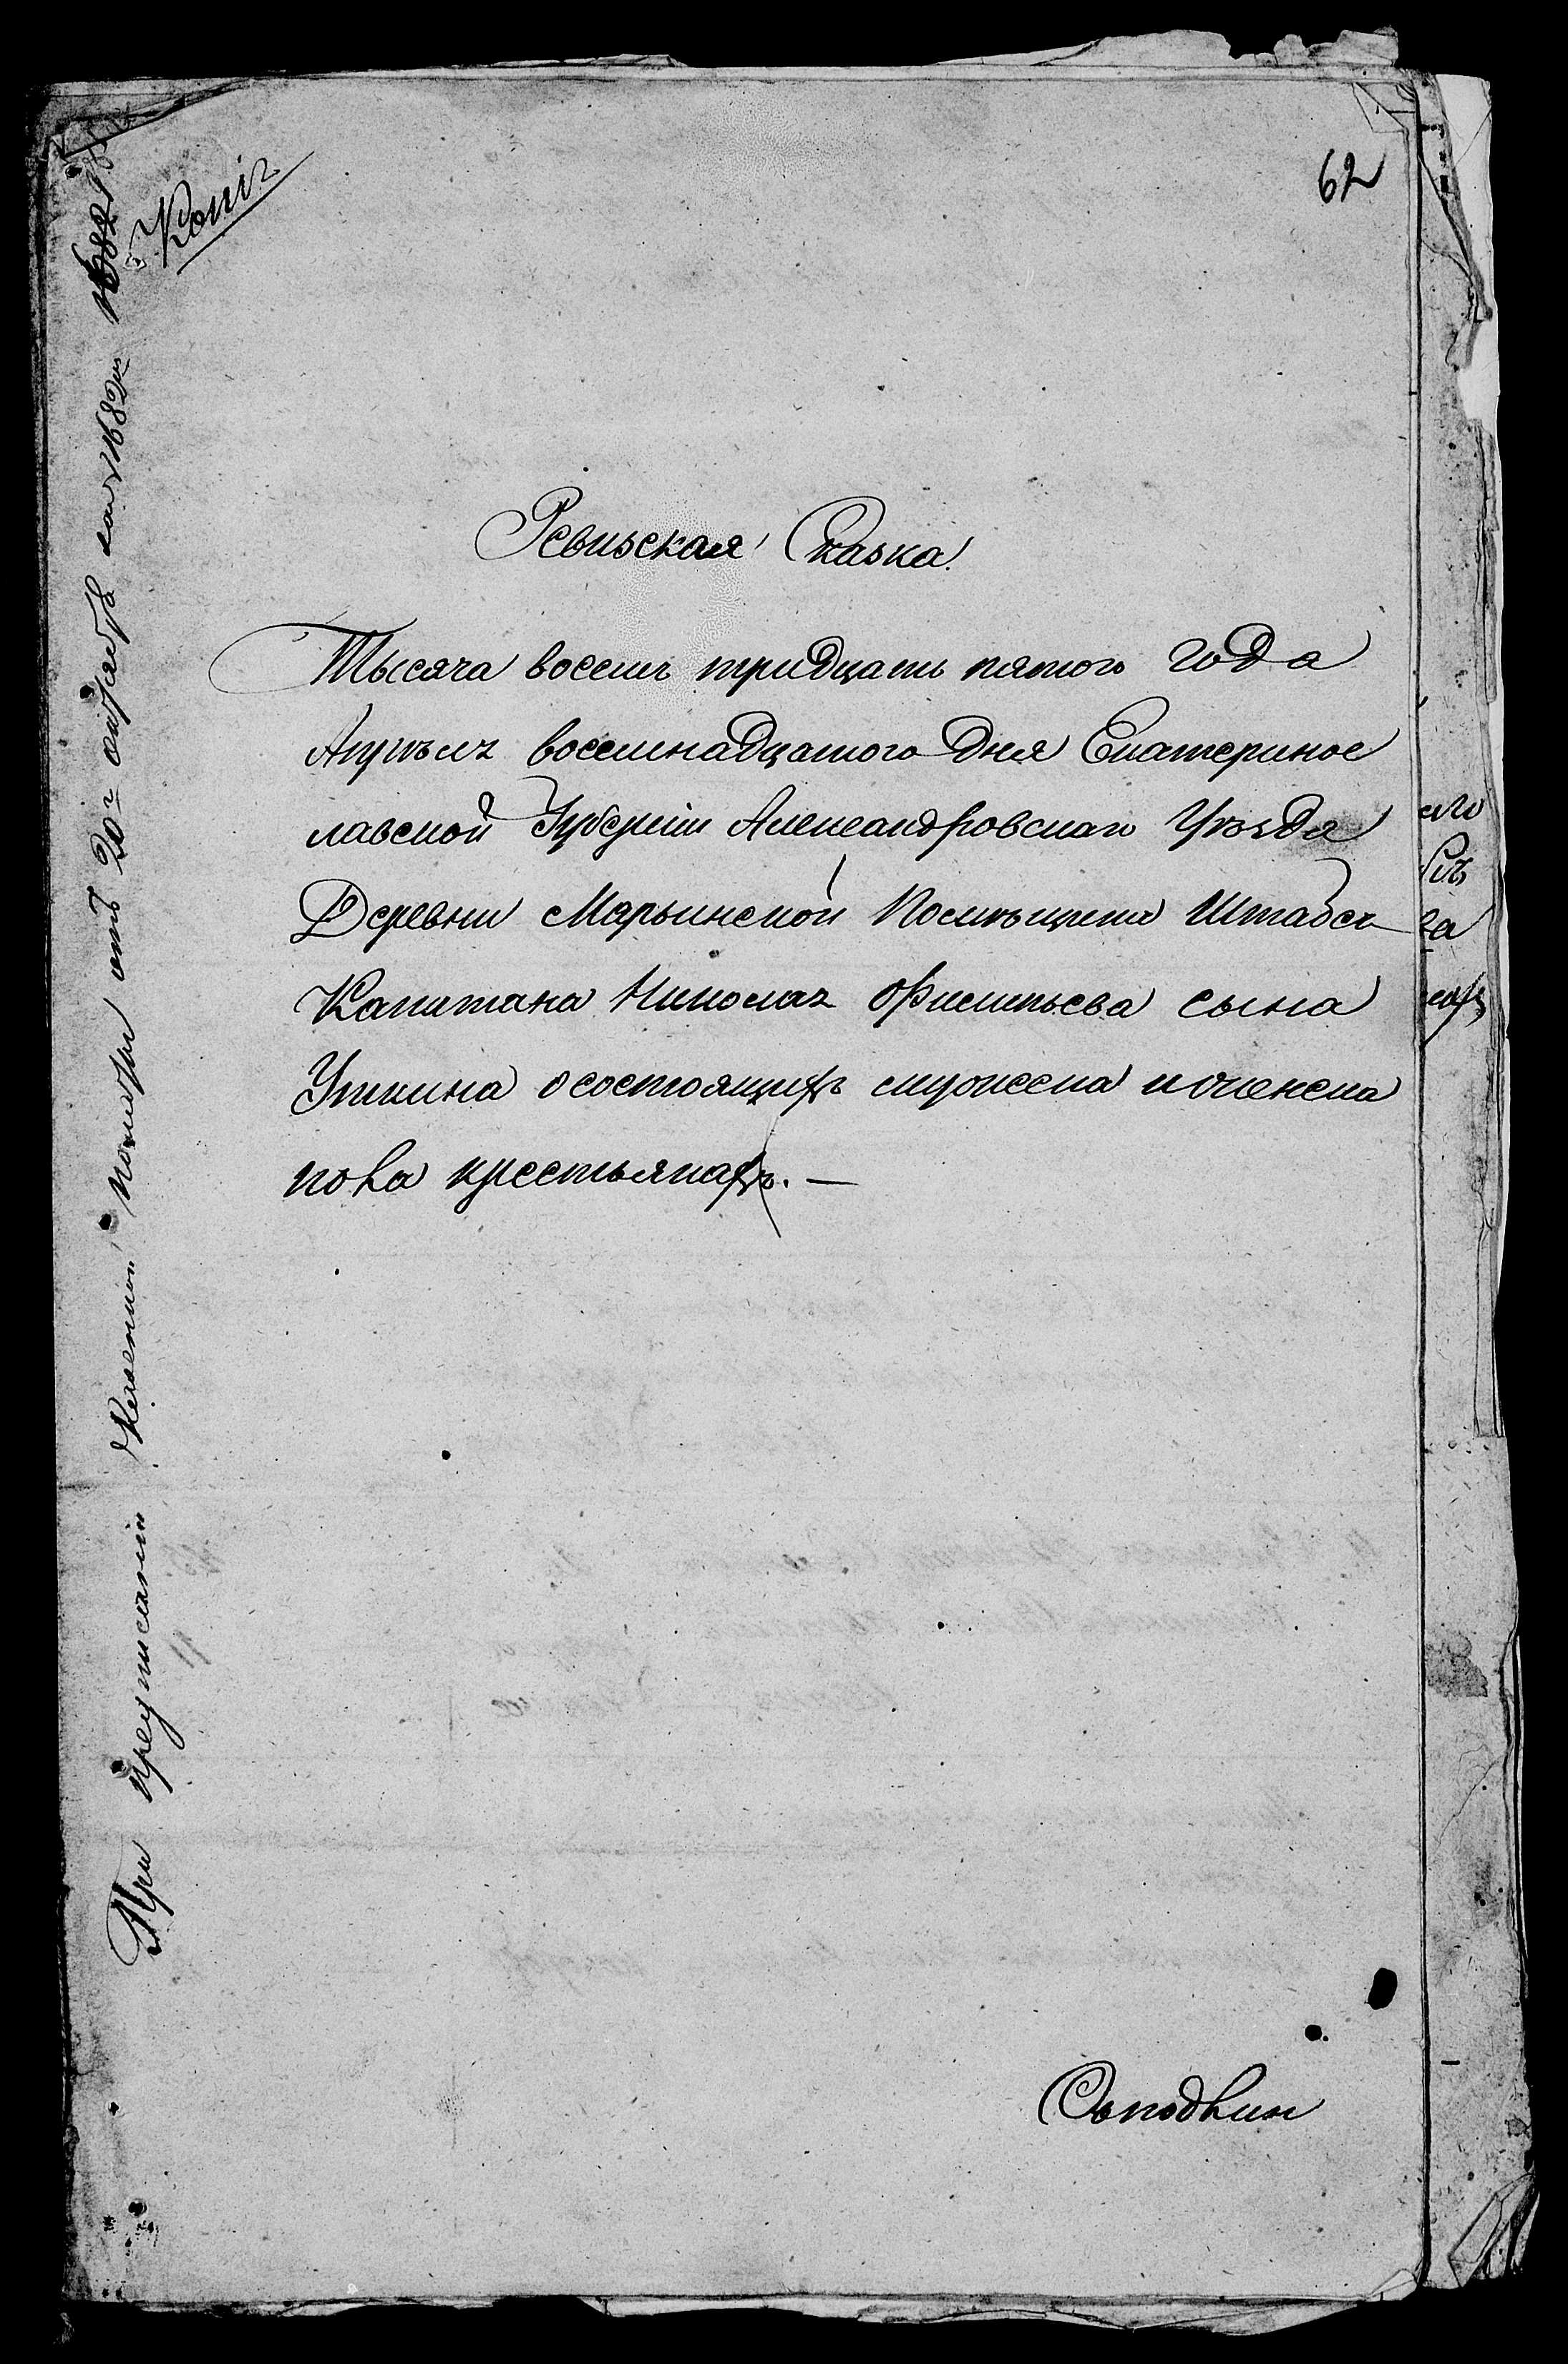 62
Копія
Ревизская Сказка
Тысяча восемъ тридцать пятого года
Апрѣля восемнадцатого дня Екатеринос
лавской Губерніи Александровскаго Уѣзда
Деревни Марьинской Помѣщика Штабсъ
Капитана Николая Филипьева сына
Уткина о состоящихъ мужеска и женска
пола крестьянахъ. —
При предписаніи Казенной Палаты отъ 20г октября